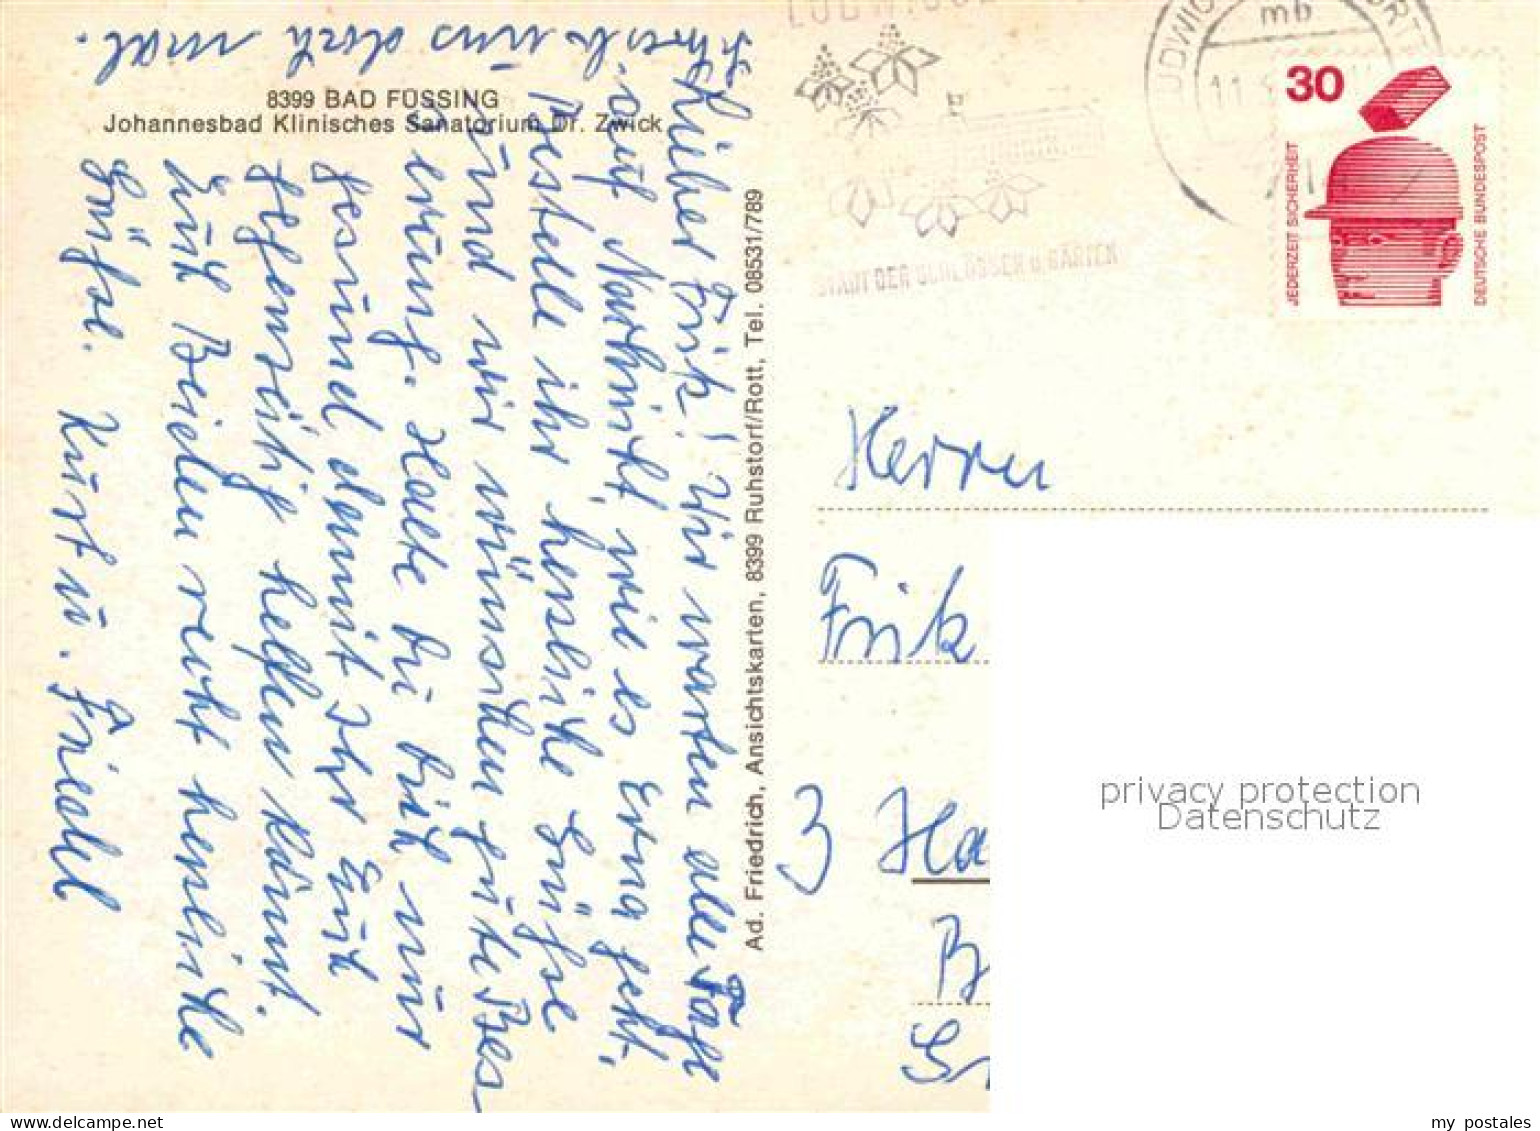 8399 BAD FÜSSING
Johannesbad Klinisches Sanatorium Dr. Zwick
Lieber Frik! Wir warten alle Tage
auf Nachricht, wie es Erna geht,
bestelle ihr herzliche Grüße
und wir wünschen gute Bes
erung. Halte Du Dich nur
gesund damit Ihr Euch
gegenseitig helfen könnt.
Euch Beiden recht herzliche
Grüße. Kurt u. Friedel
Schreib uns doch mal.
Ad. Friedrich, Ansichtskarten, 8399 Ruhstorf/Rott, Tel. 08531/789
mb
11
STADT DER SCHLÖSSER u. GÄRTEN
30
JEDERZEIT SICHERHEIT
DEUTSCHE BUNDESPOST
Herrn
Frik
3 Ha
B
Gr
privacy protection
Datenschutz
my postales